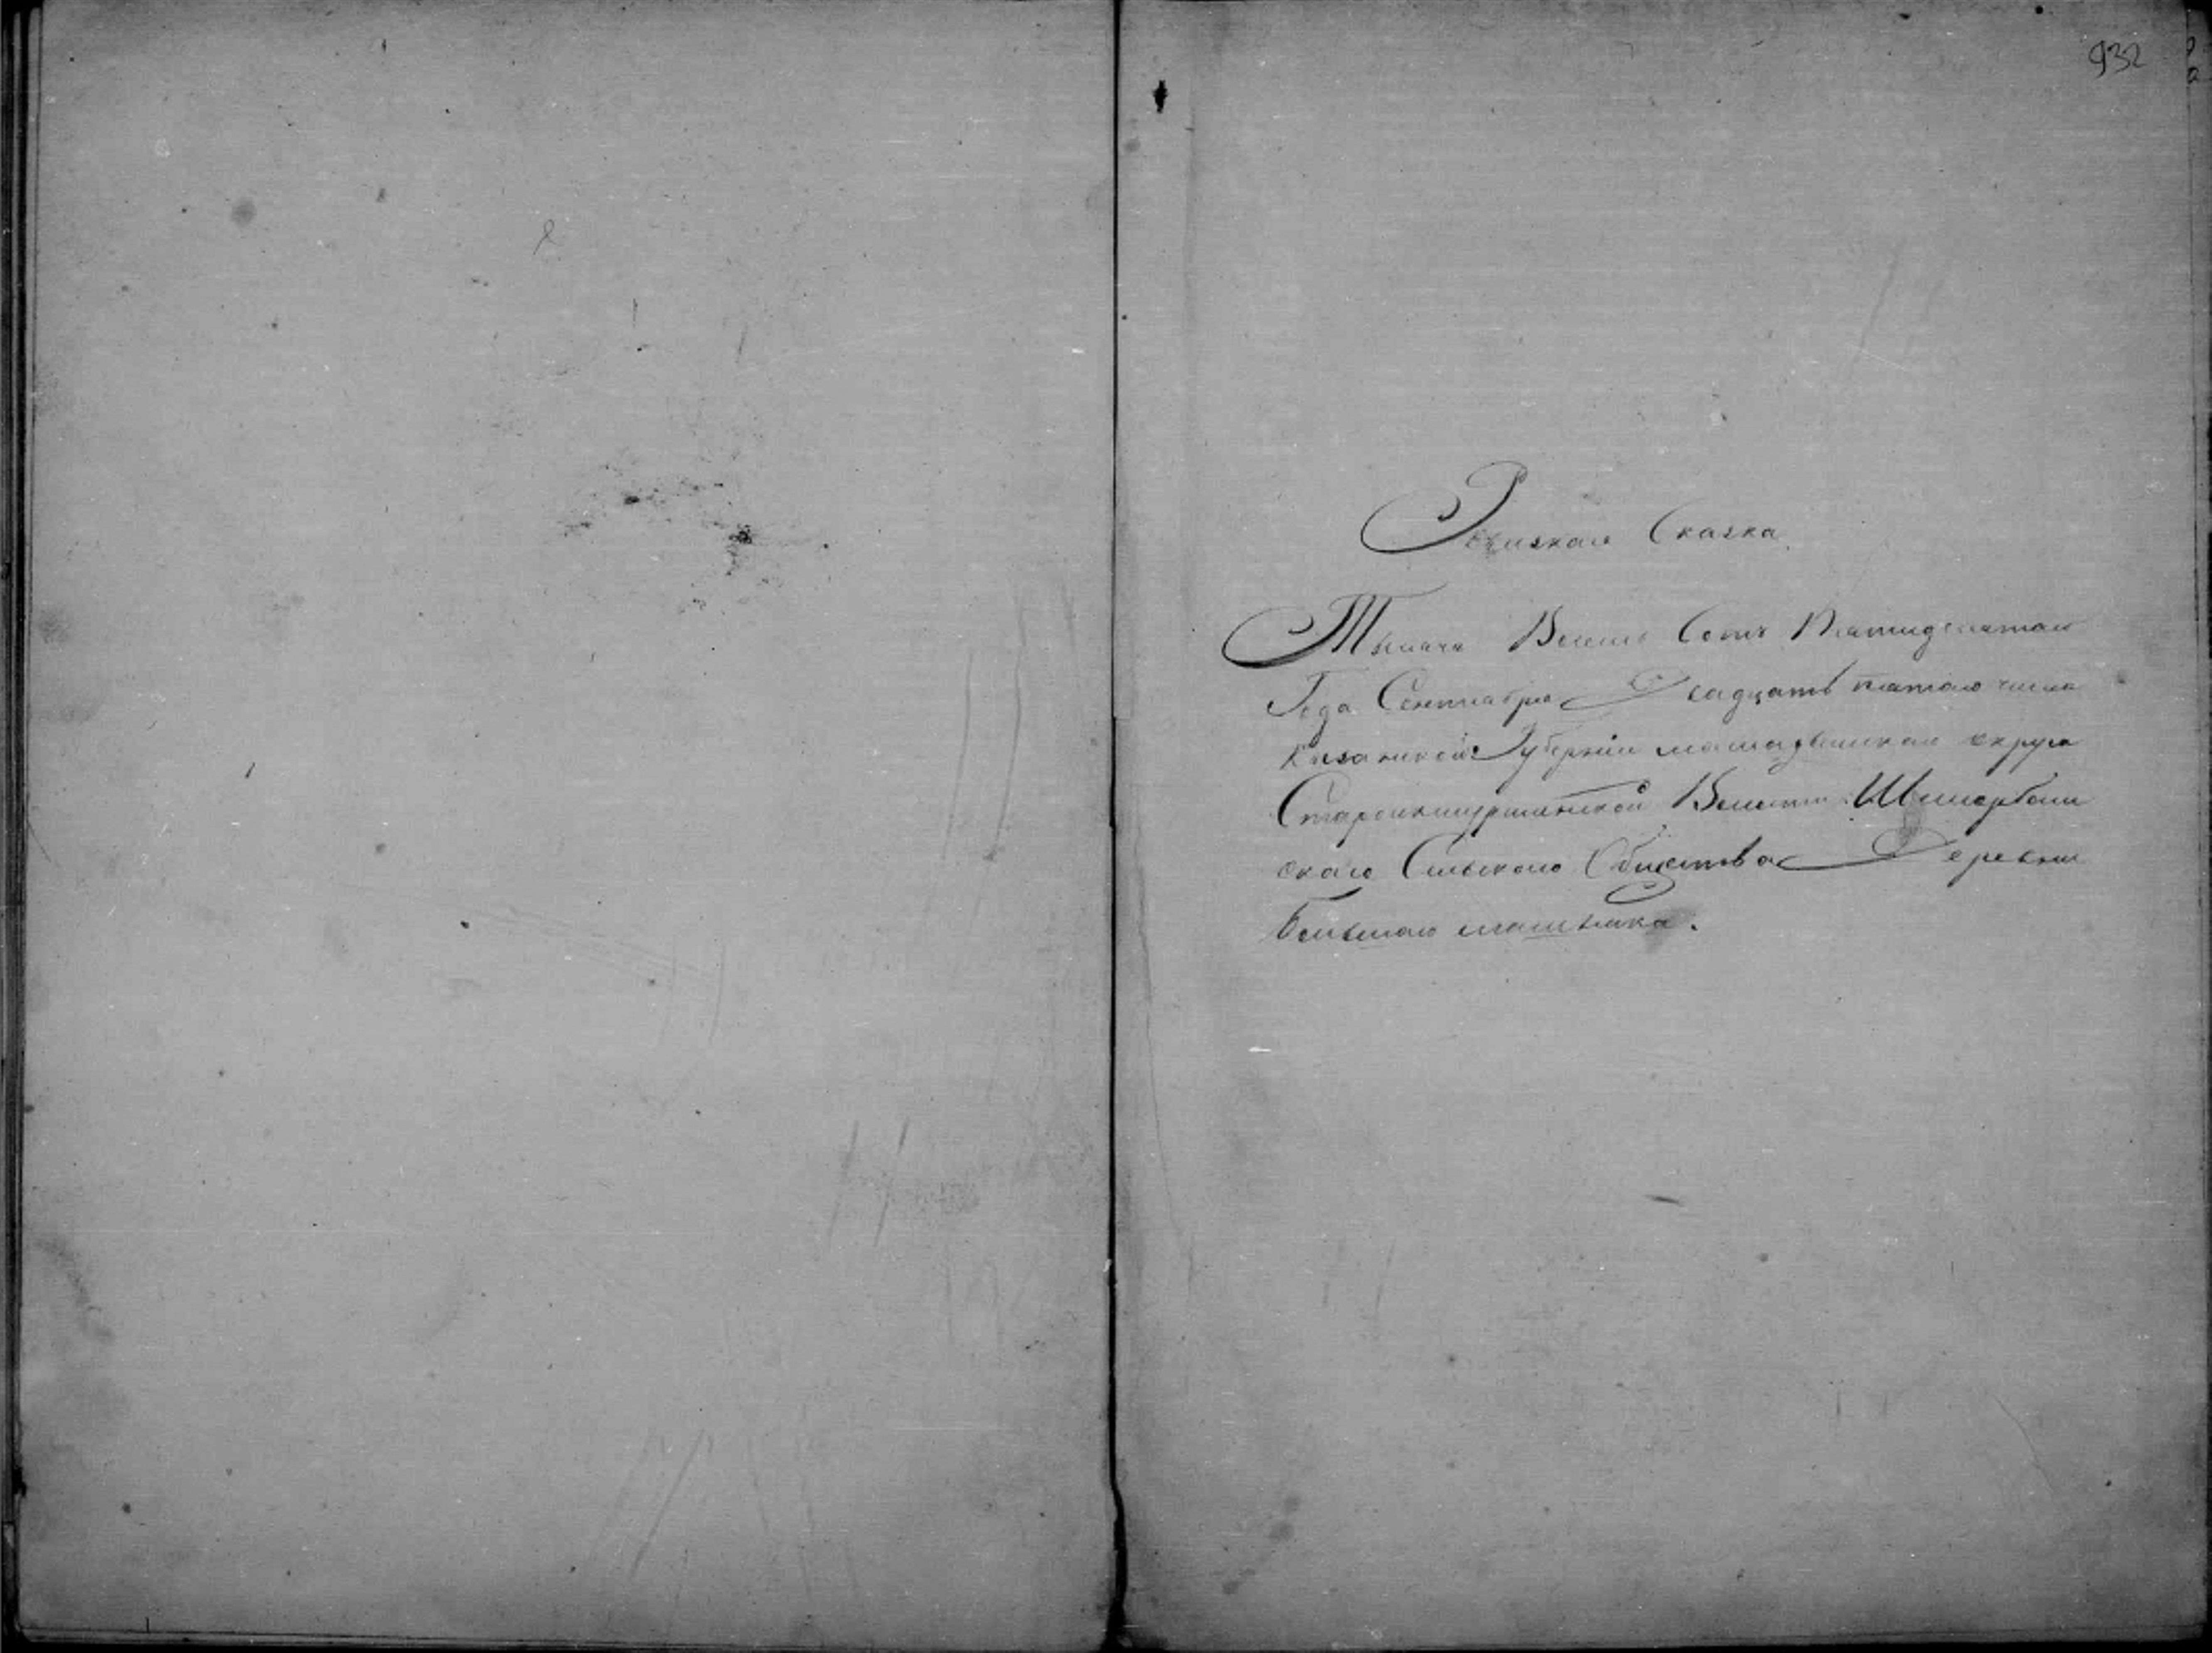 932
Ревизкая Сказка
Тысяча Восемь Сотъ Пятидесятаго
Года Сентября Двадцать пятаго числа
Казанской Губерніи мамадышскаго округа
Волости
скаго Сельскаго Общества Деревни
Большаго машляка.